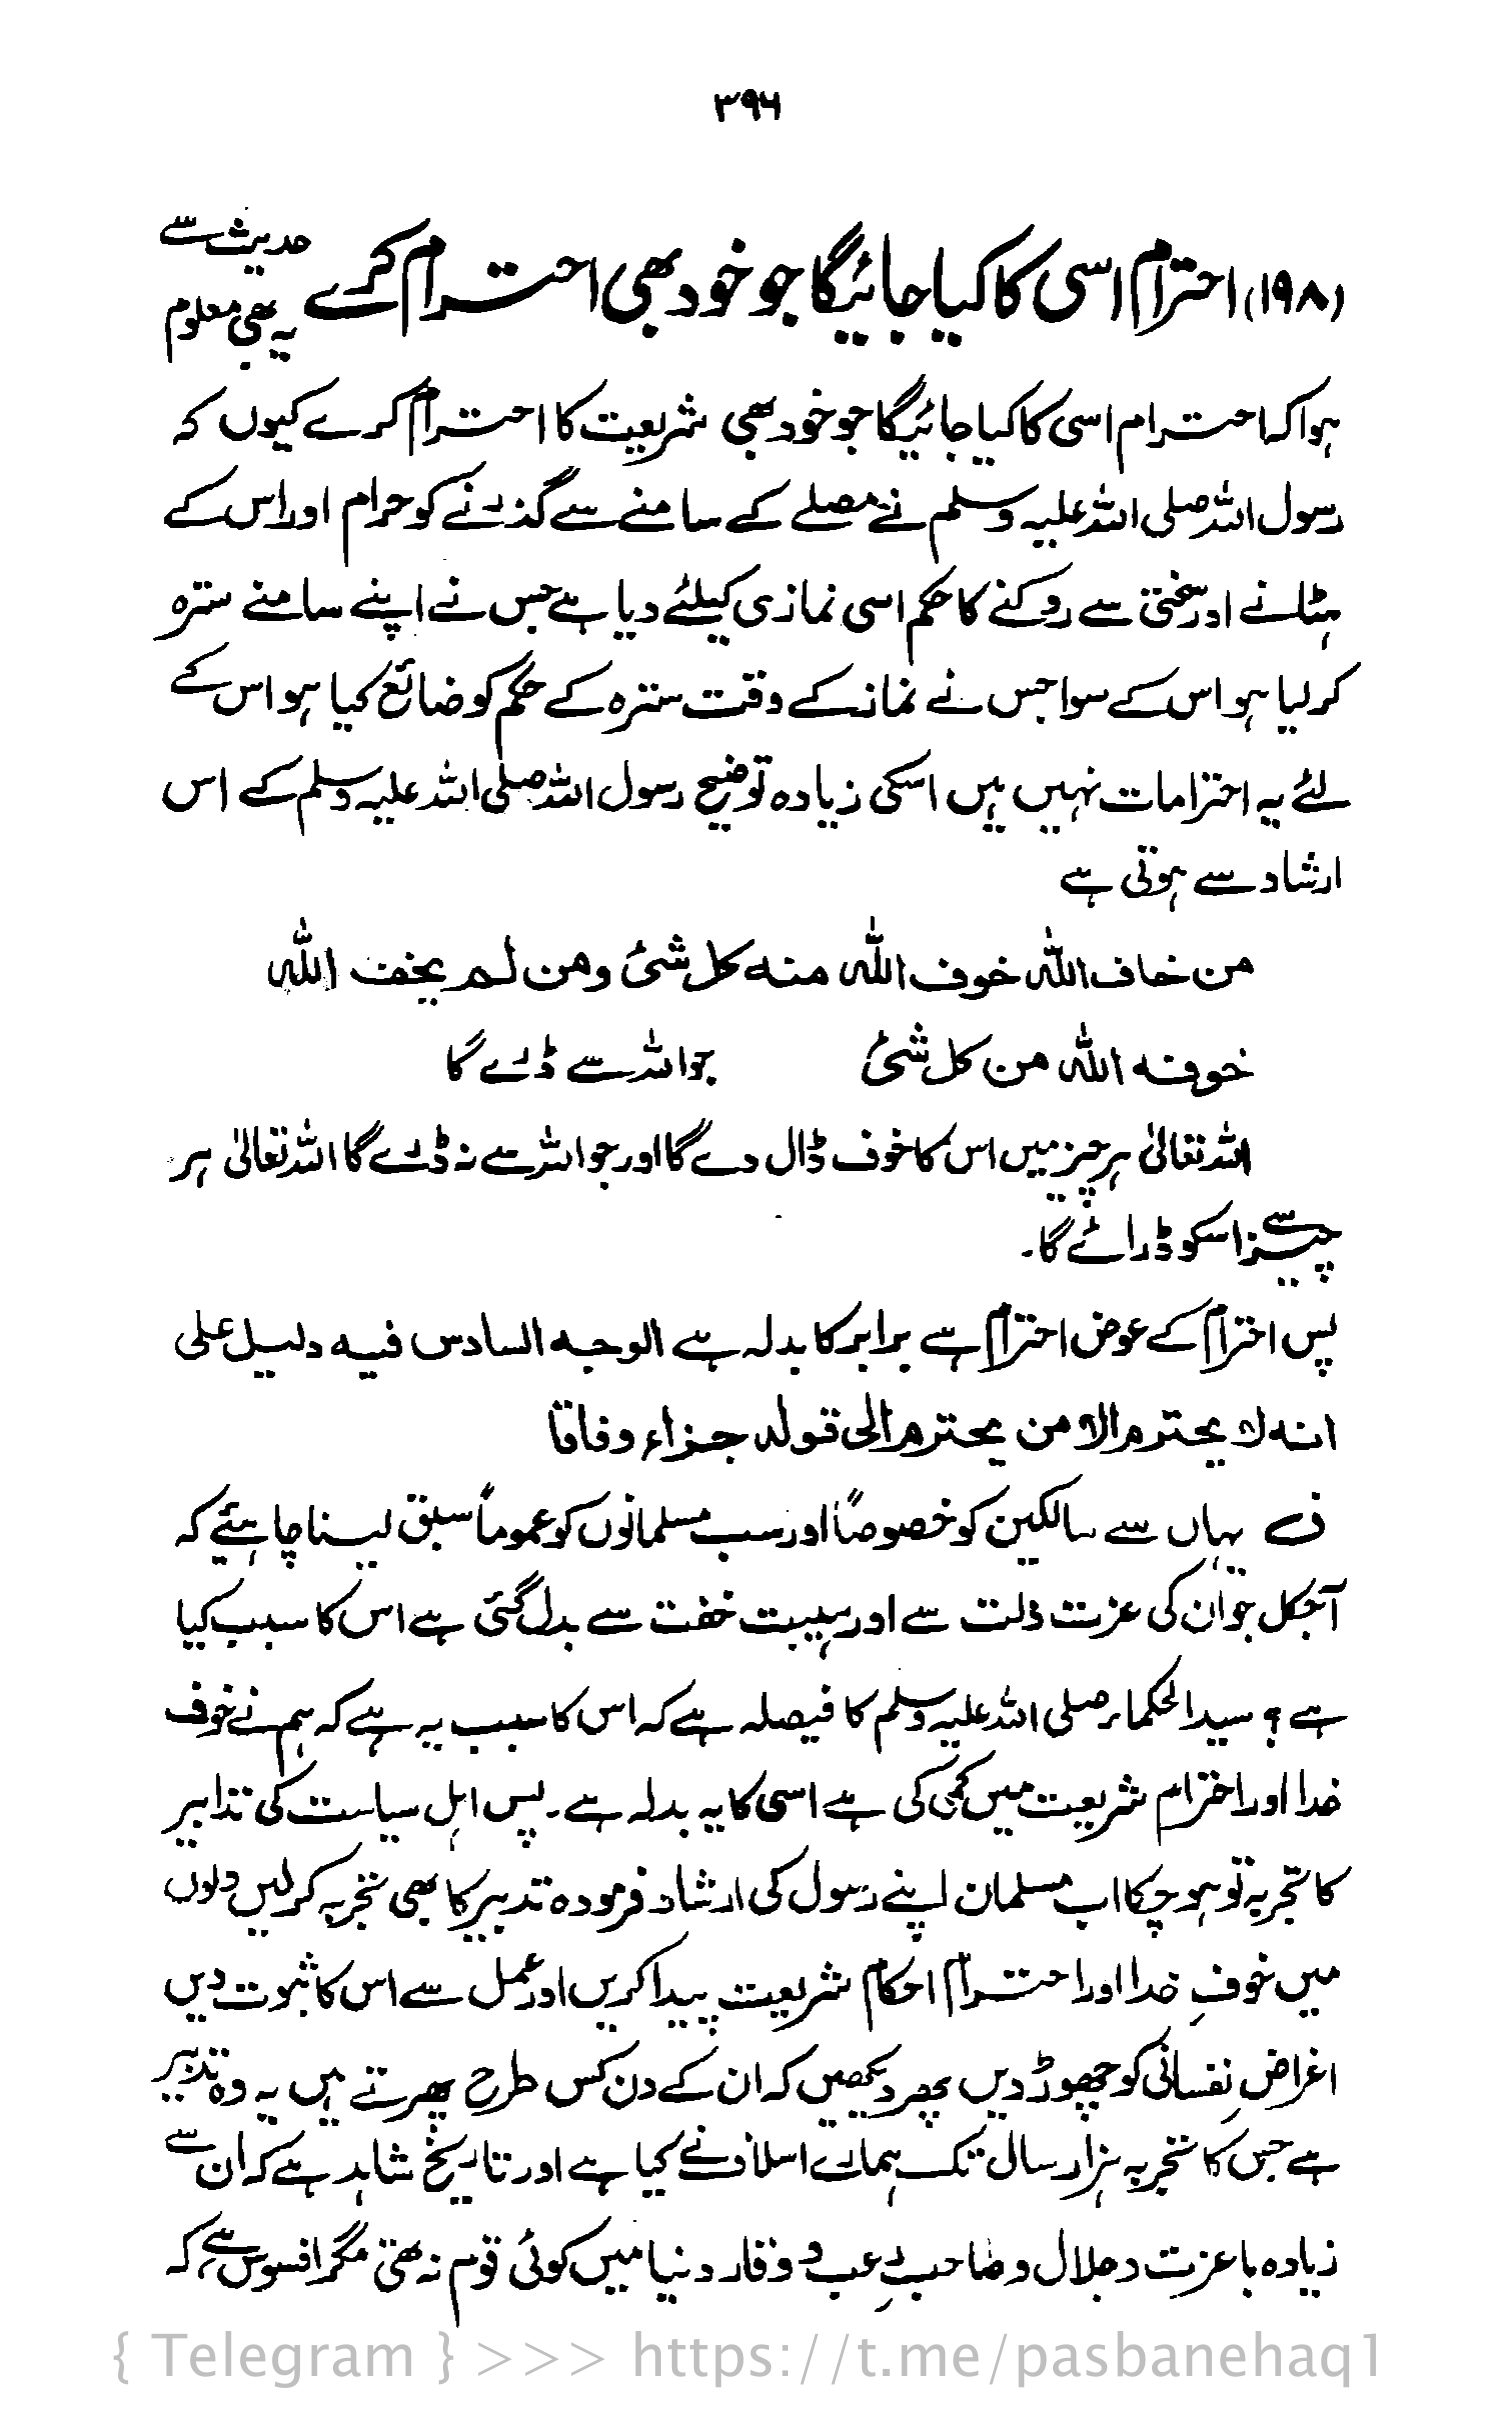 ۳۹۶
(۱۹۸) احترام اسی کا کیا جائیگا جو خود بھی احترام کرے حدیث سے
یہ بھی معلوم
ہوا کہ احترام اسی کا کیا جائیگا جو خود بھی شریعت کا احترام کرے کیوں کہ
رسول اللہ صلی اللہ علیہ وسلم نے مصلے کے سامنے سے گذرنے کو حرام اور اس کے
ہٹانے اور سختی سے روکنے کا حکم اسی نمازی کیلئے دیا ہے جس نے اپنے سامنے سترہ
کر لیا ہو اس کے سوا جس نے نماز کے وقت سترہ کے حکم کو ضائع کیا ہو اس کے
لئے یہ احترامات نہیں ہیں اسکی زیادہ توضیح رسول اللہ صلی اللہ علیہ وسلم کے اس
ارشاد سے ہوتی ہے
من خاف اللہ خوف اللہ منہ کل شئ ومن لم یخف اللہ
خوفہ اللہ من کل شئ جو اللہ سے ڈرے گا
اللہ تعالیٰ ہر چیز میں اس کا خوف ڈال دے گا اور جو اللہ سے نہ ڈرے گا اللہ تعالیٰ ہر
چیز سے اسکو ڈرائے گا۔
پس احترام کے عوض احترام ہے برابر کا بدلہ ہے الوجہ السادس فیہ دلیل علی
انہ لا یحترم الا من یحترم الی قولہ جزاء وفاقا
ف یہاں سے سالکین کو خصوصاً اور سب مسلمانوں کو عموماً سبق لینا چاہئیے کہ
آجکل جو ان کی عزت ذلت سے اور ہیبت خفت سے بدل گئی ہے اس کا سبب کیا
ہے؟ سید الحکماء صلی اللہ علیہ وسلم کا فیصلہ ہے کہ اس کا سبب یہ ہے کہ ہم نے خوف
خدا اور احترام شریعت میں کمی کی ہے اسی کا یہ بدلہ ہے۔ پس اہل سیاست کی تدابیر
کا تجربہ تو ہو چکا اب مسلمان اپنے رسول کی ارشاد فرمودہ تدبیر کا بھی تجربہ کر لیں دلوں
میں خوفِ خدا اور احترام احکام شریعت پیدا کریں اور عمل سے اس کا ثبوت دیں
اغراضِ نفسانی کو چھوڑ دیں پھر دیکھیں کہ ان کے دن کس طرح پھرتے ہیں یہ وہ تدبیر
ہے جس کا تجربہ ہزار سال تک ہمارے اسلاف نے کیا ہے اور تاریخ شاہد ہے کہ ان سے
زیادہ با عزت و جلال و صاحبِ رعب و وقار دنیا میں کوئی قوم نہ تھی مگر افسوس ہے کہ
{ Telegram } >>> https://t.me/pasbanehaq1